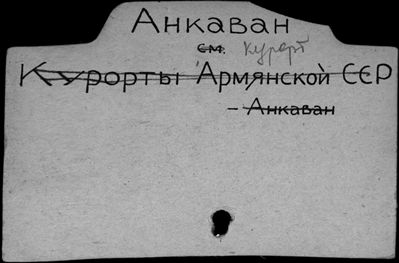 Анкаван
см. курорт
Курорты Армянской ССР
– Анкаван